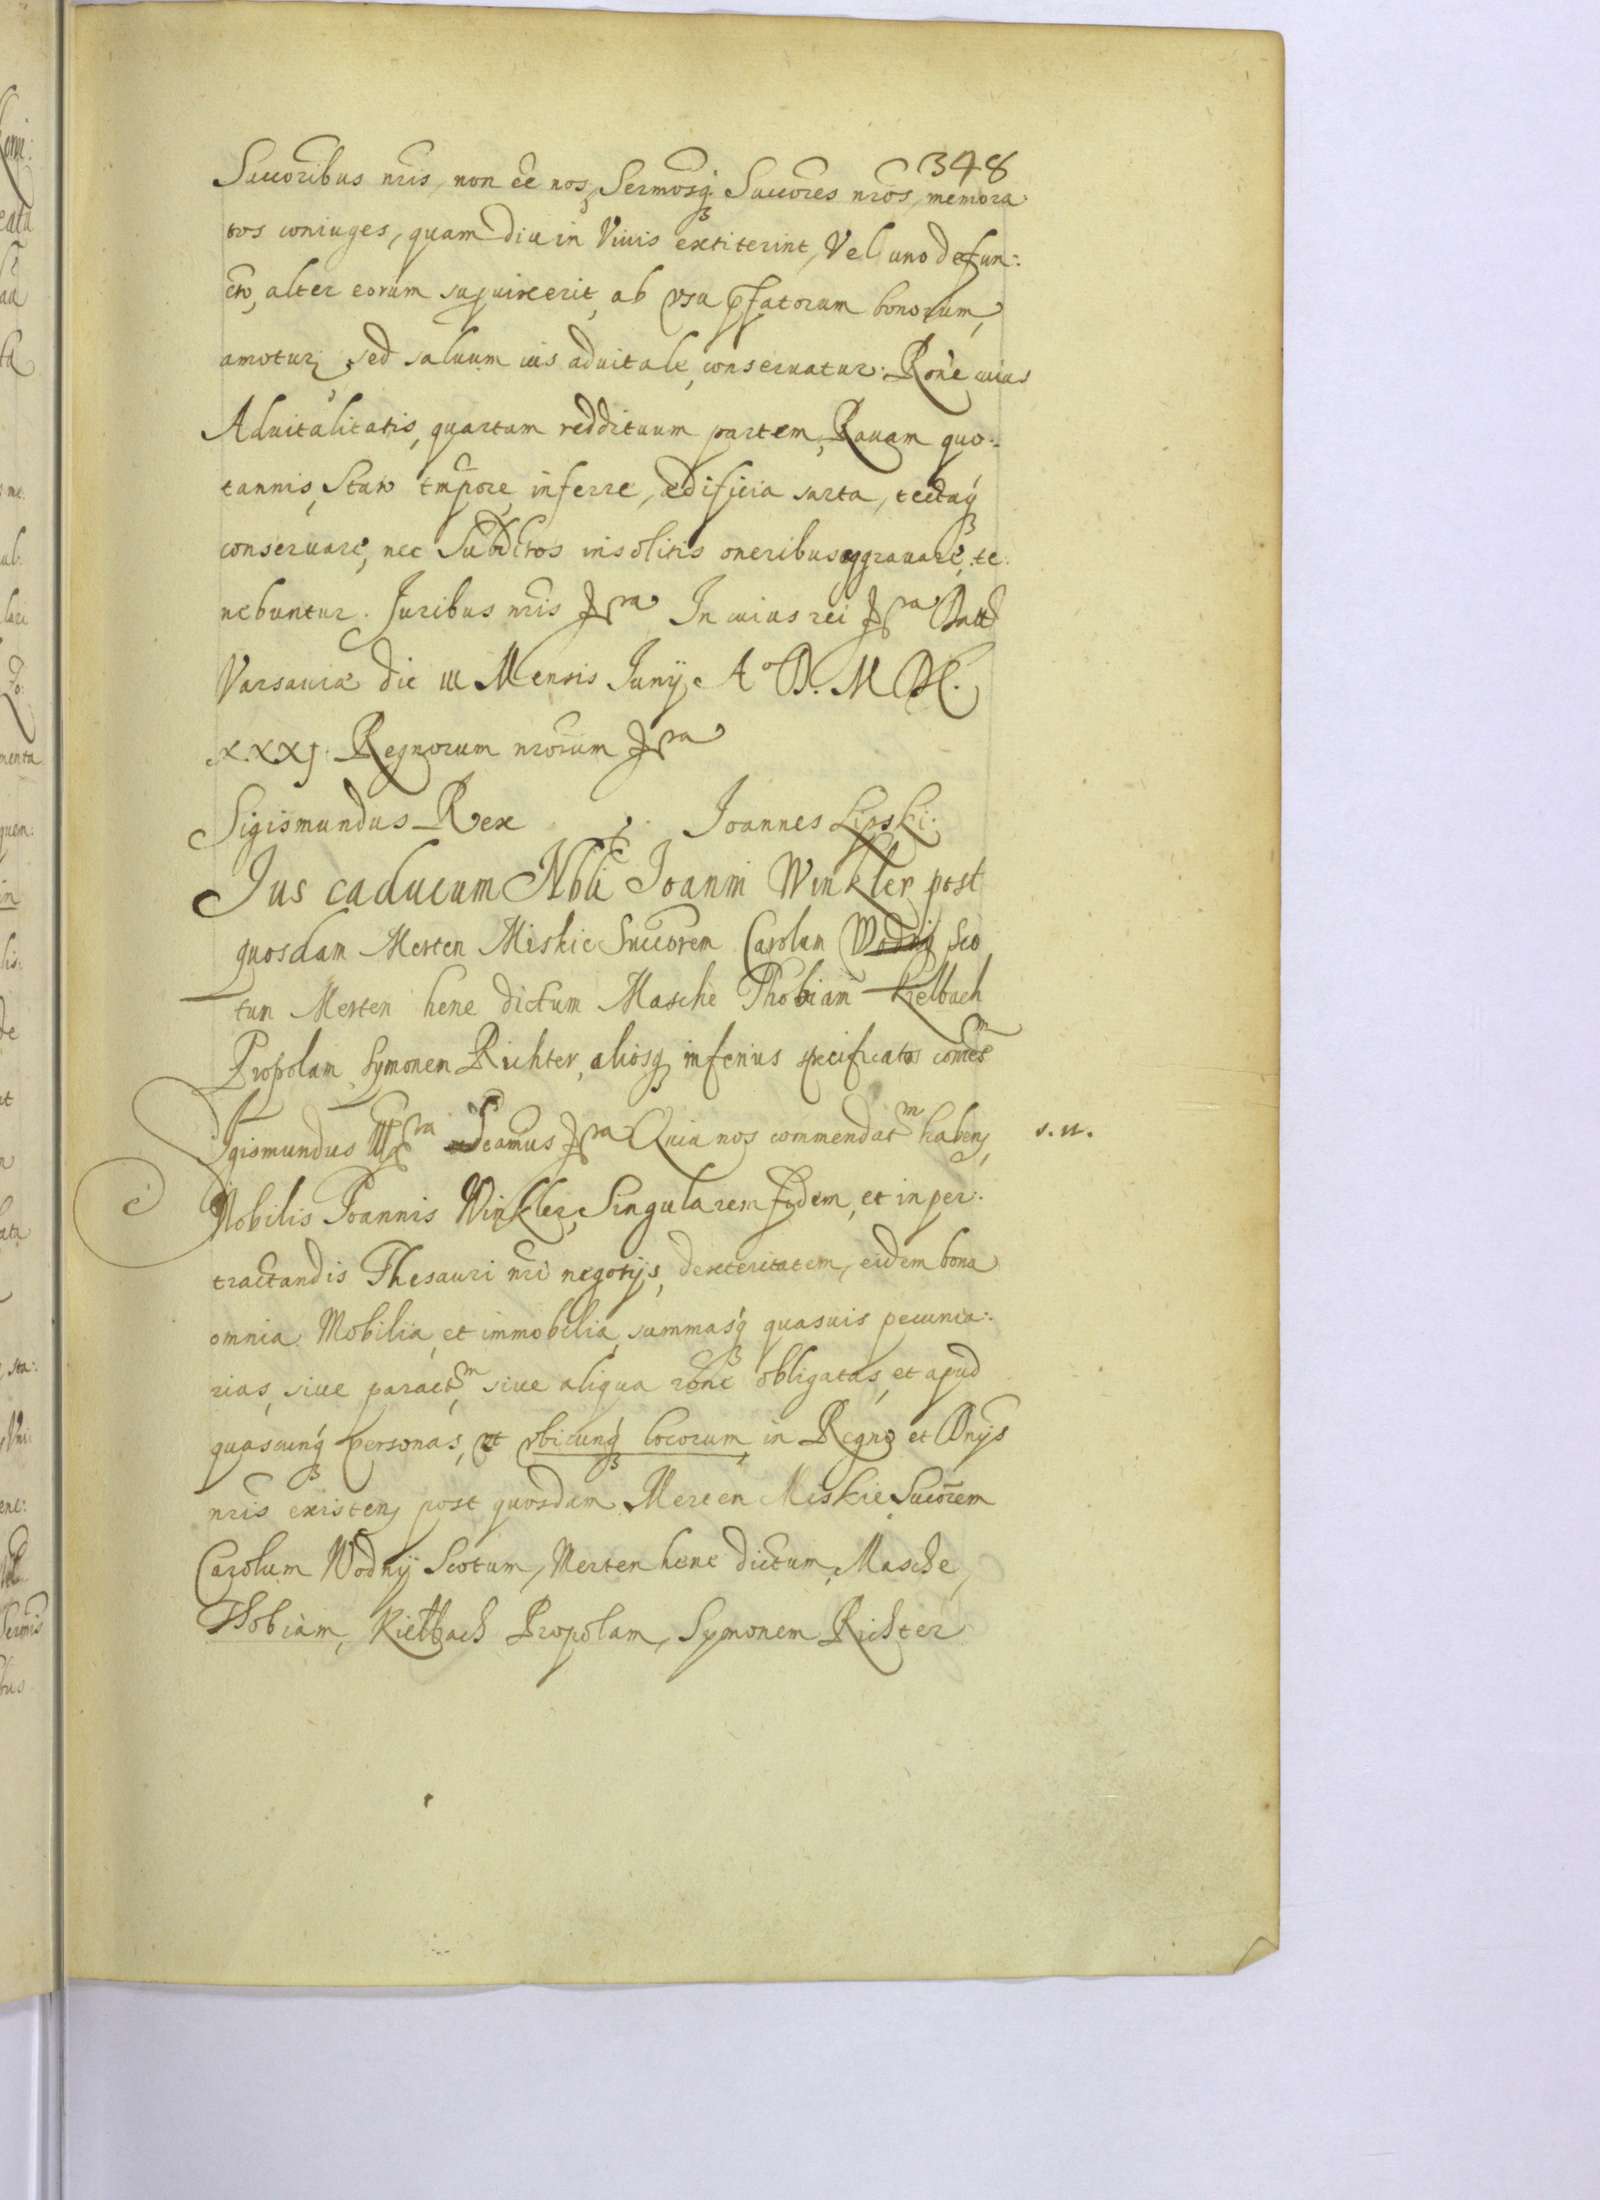 348
Succoribus nris, non ee nos, Sermosq Succores nros, memora
tos coniuges, quam diu in Viuis extiterint, Vel uno defun:
cto, alter eorum supuixerit, ab vsu pfatorum bonorum,
amoturi, sed saluum ius aduitale, conseruatur: Rone cuius
Aduitalitatis, quartam reddituum partem, Rauam quo:
tannis, stato tmpore inferre, ædificia sarta, tectaq
conseruare, nec Subditos insolitis oneribus aggrauare, te
nebuntur. Juribus nris &ra In cuius rei &ra Datt
Varsauiæ die III Mensis Junij Aº D. M DC.
XXXJ. Regnorum nrorum &ra
Sigismundus Rex Joannes Lipski.
Jus caducum Nbli Joanni Winkler post
quosdam Merten Miskie Succorem Carolum Wodnij Sco
tum Merten hene dictum Masche Thobiam Kielbach
Propolam Symonem Richter, aliosq inferius specificatos confertm
Sigismundus III &ra Scamus &ra Quia nos commendatm haben, s. n.
Nobilis Joannis Winkler, Singularem fidem, et in per:
tractandis Thesauri nri negotijs, dexteritatem, eidem bona
omnia Mobilia, et immobilia, summasq quasuis pecunia:
rias, siue paractm siue aliqua rone obligatas, et apud
quascunq personas, et vbicunq locorum in Regno et Dnijs
nris existen, post quosdam Merten Miskie Sucorem
Carolum Wodnij Scotum, Merten hene dictum, Masche,
Thobiam, Kielbach Propolam, Symonem Richter